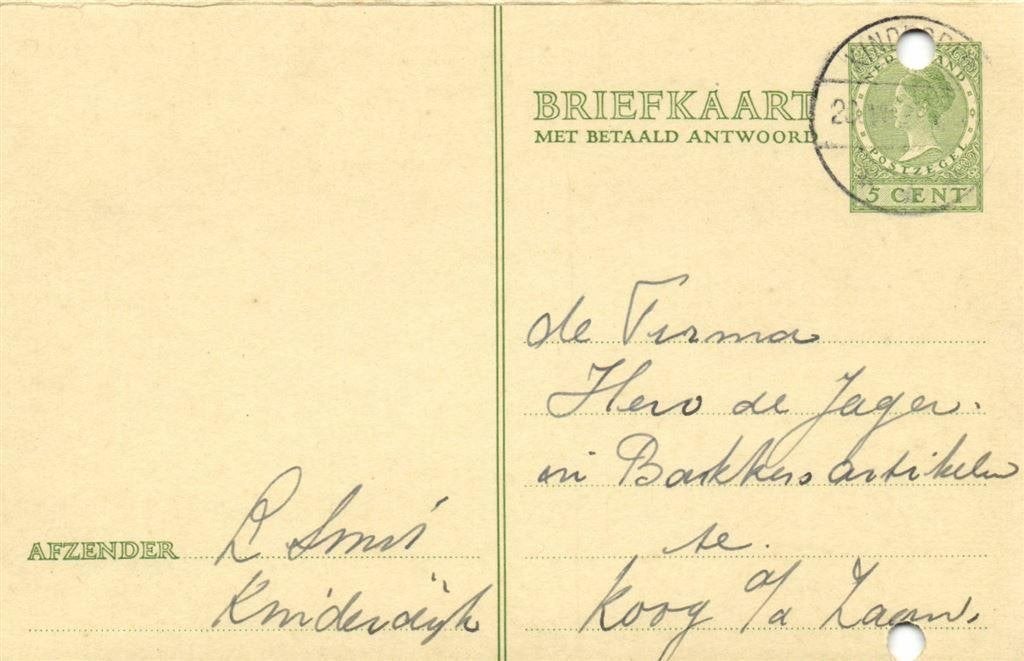 BRIEFKAART
MET BETAALD ANTWOORD
NEDERLAND
POSTZEGEL
5 CENT
de Firma
Hero de Jager.
in Bakkersartikelen
te.
Koog a/d Zaan.
AFZENDER L Smit
Kinderdijk